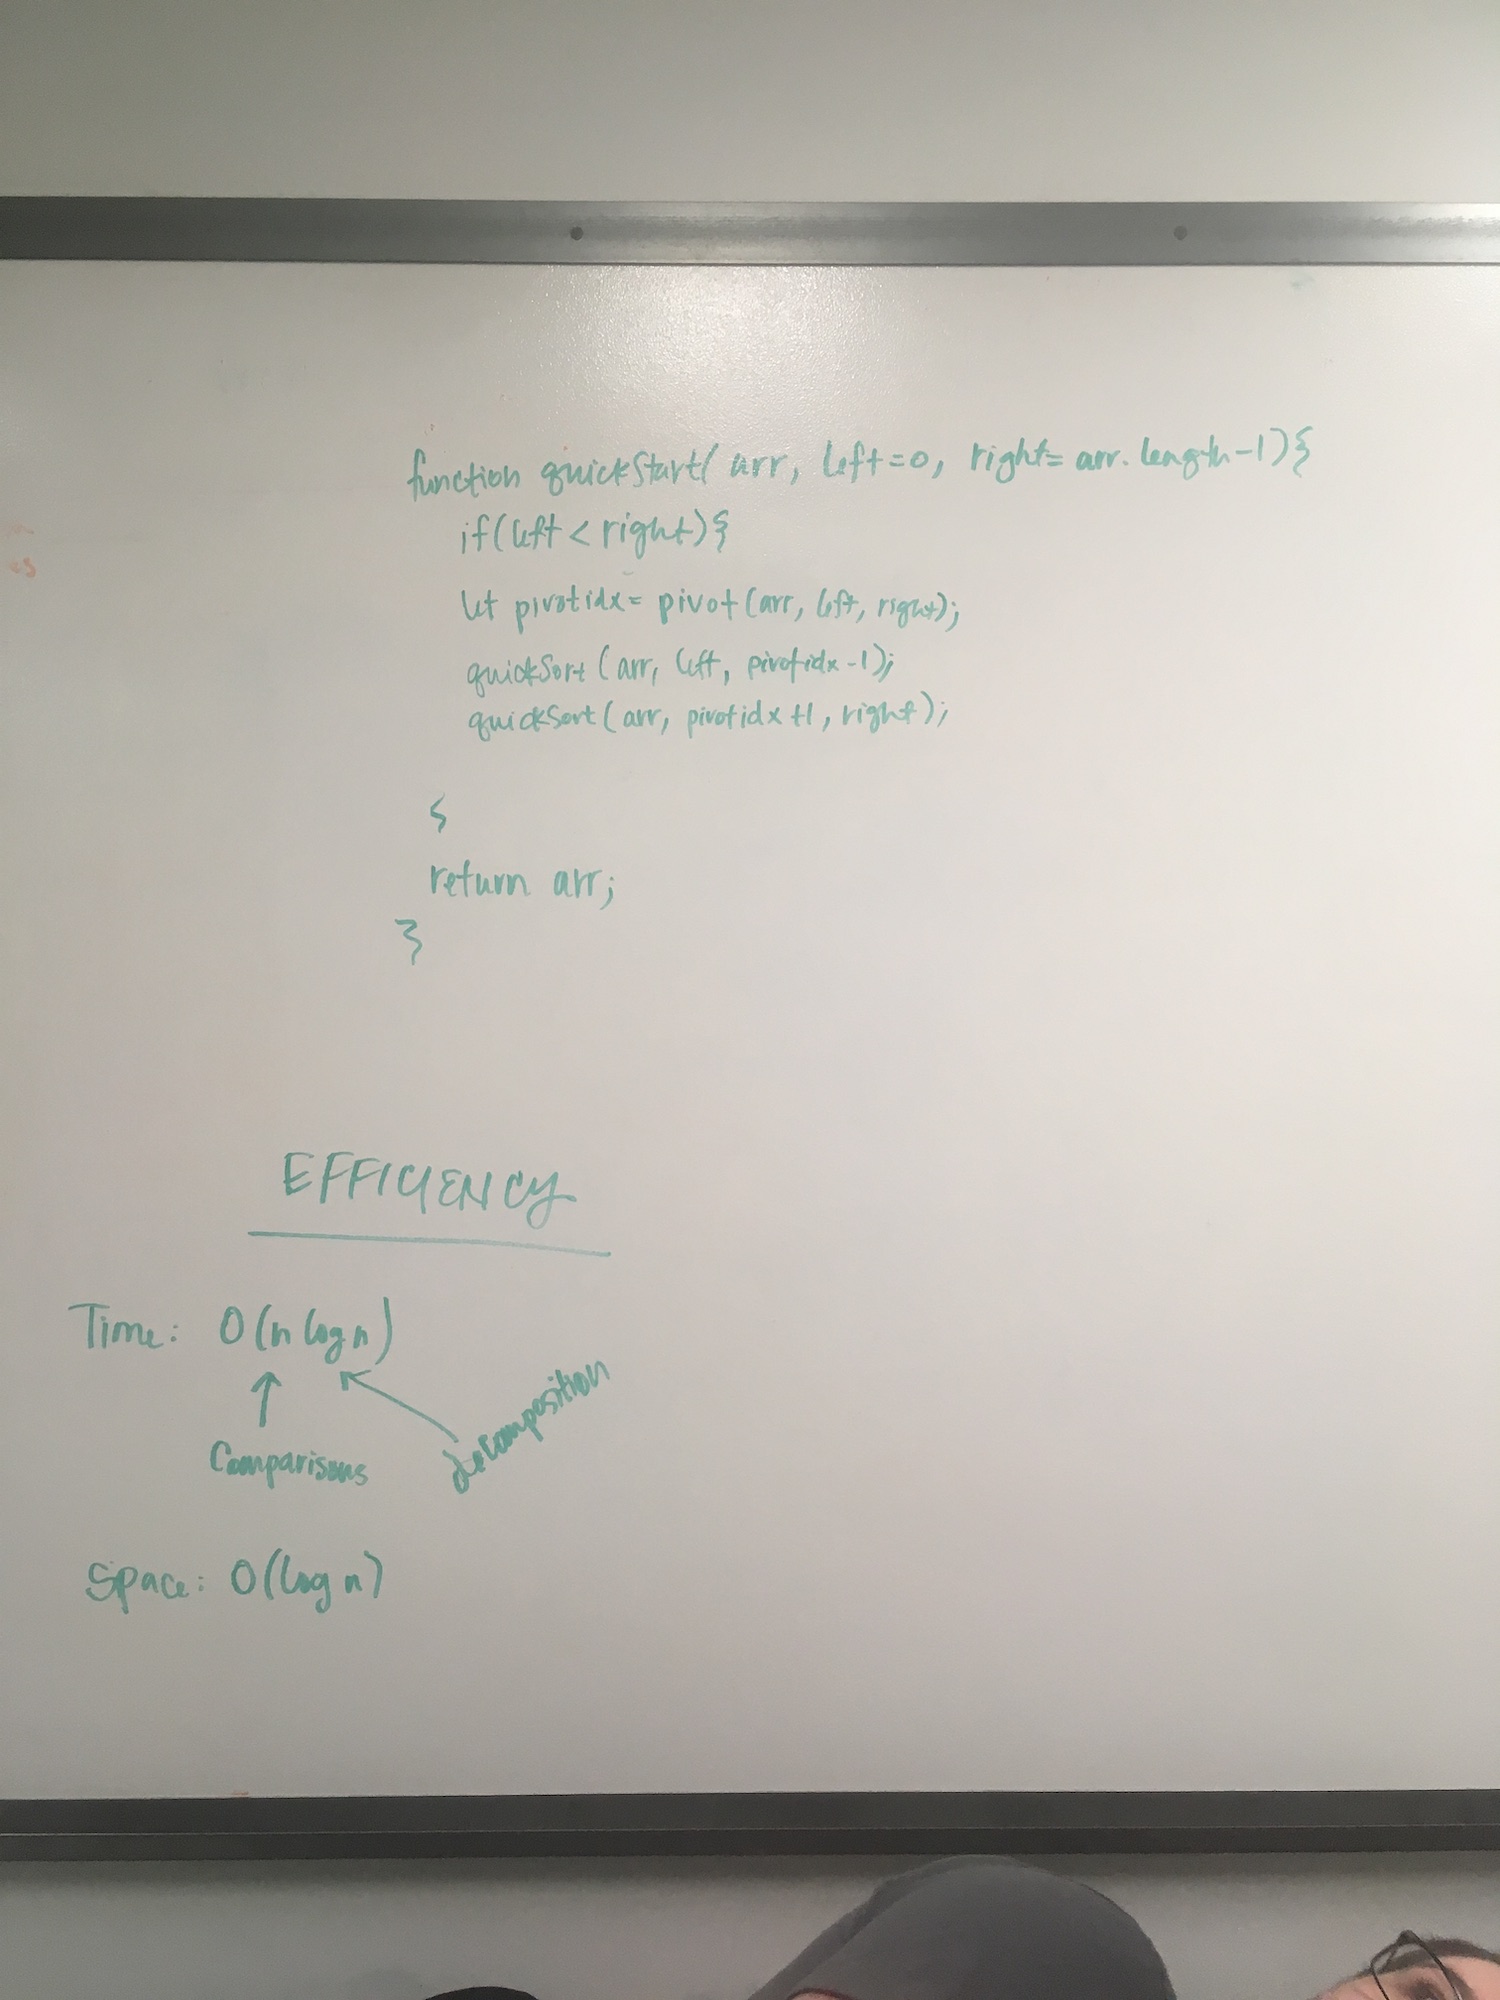 function quickStart( arr, left=0, right= arr.length-1){
if(left < right){
let pivotidx= pivot(arr, left, right);
quickSort (arr, left, pivotidx-1);
quickSort(arr, pivotidx+1, right);
{
return arr;
}
EFFICIENCY
Time: O(n log n)
Comparisons
decomposition
Space: O(log n)